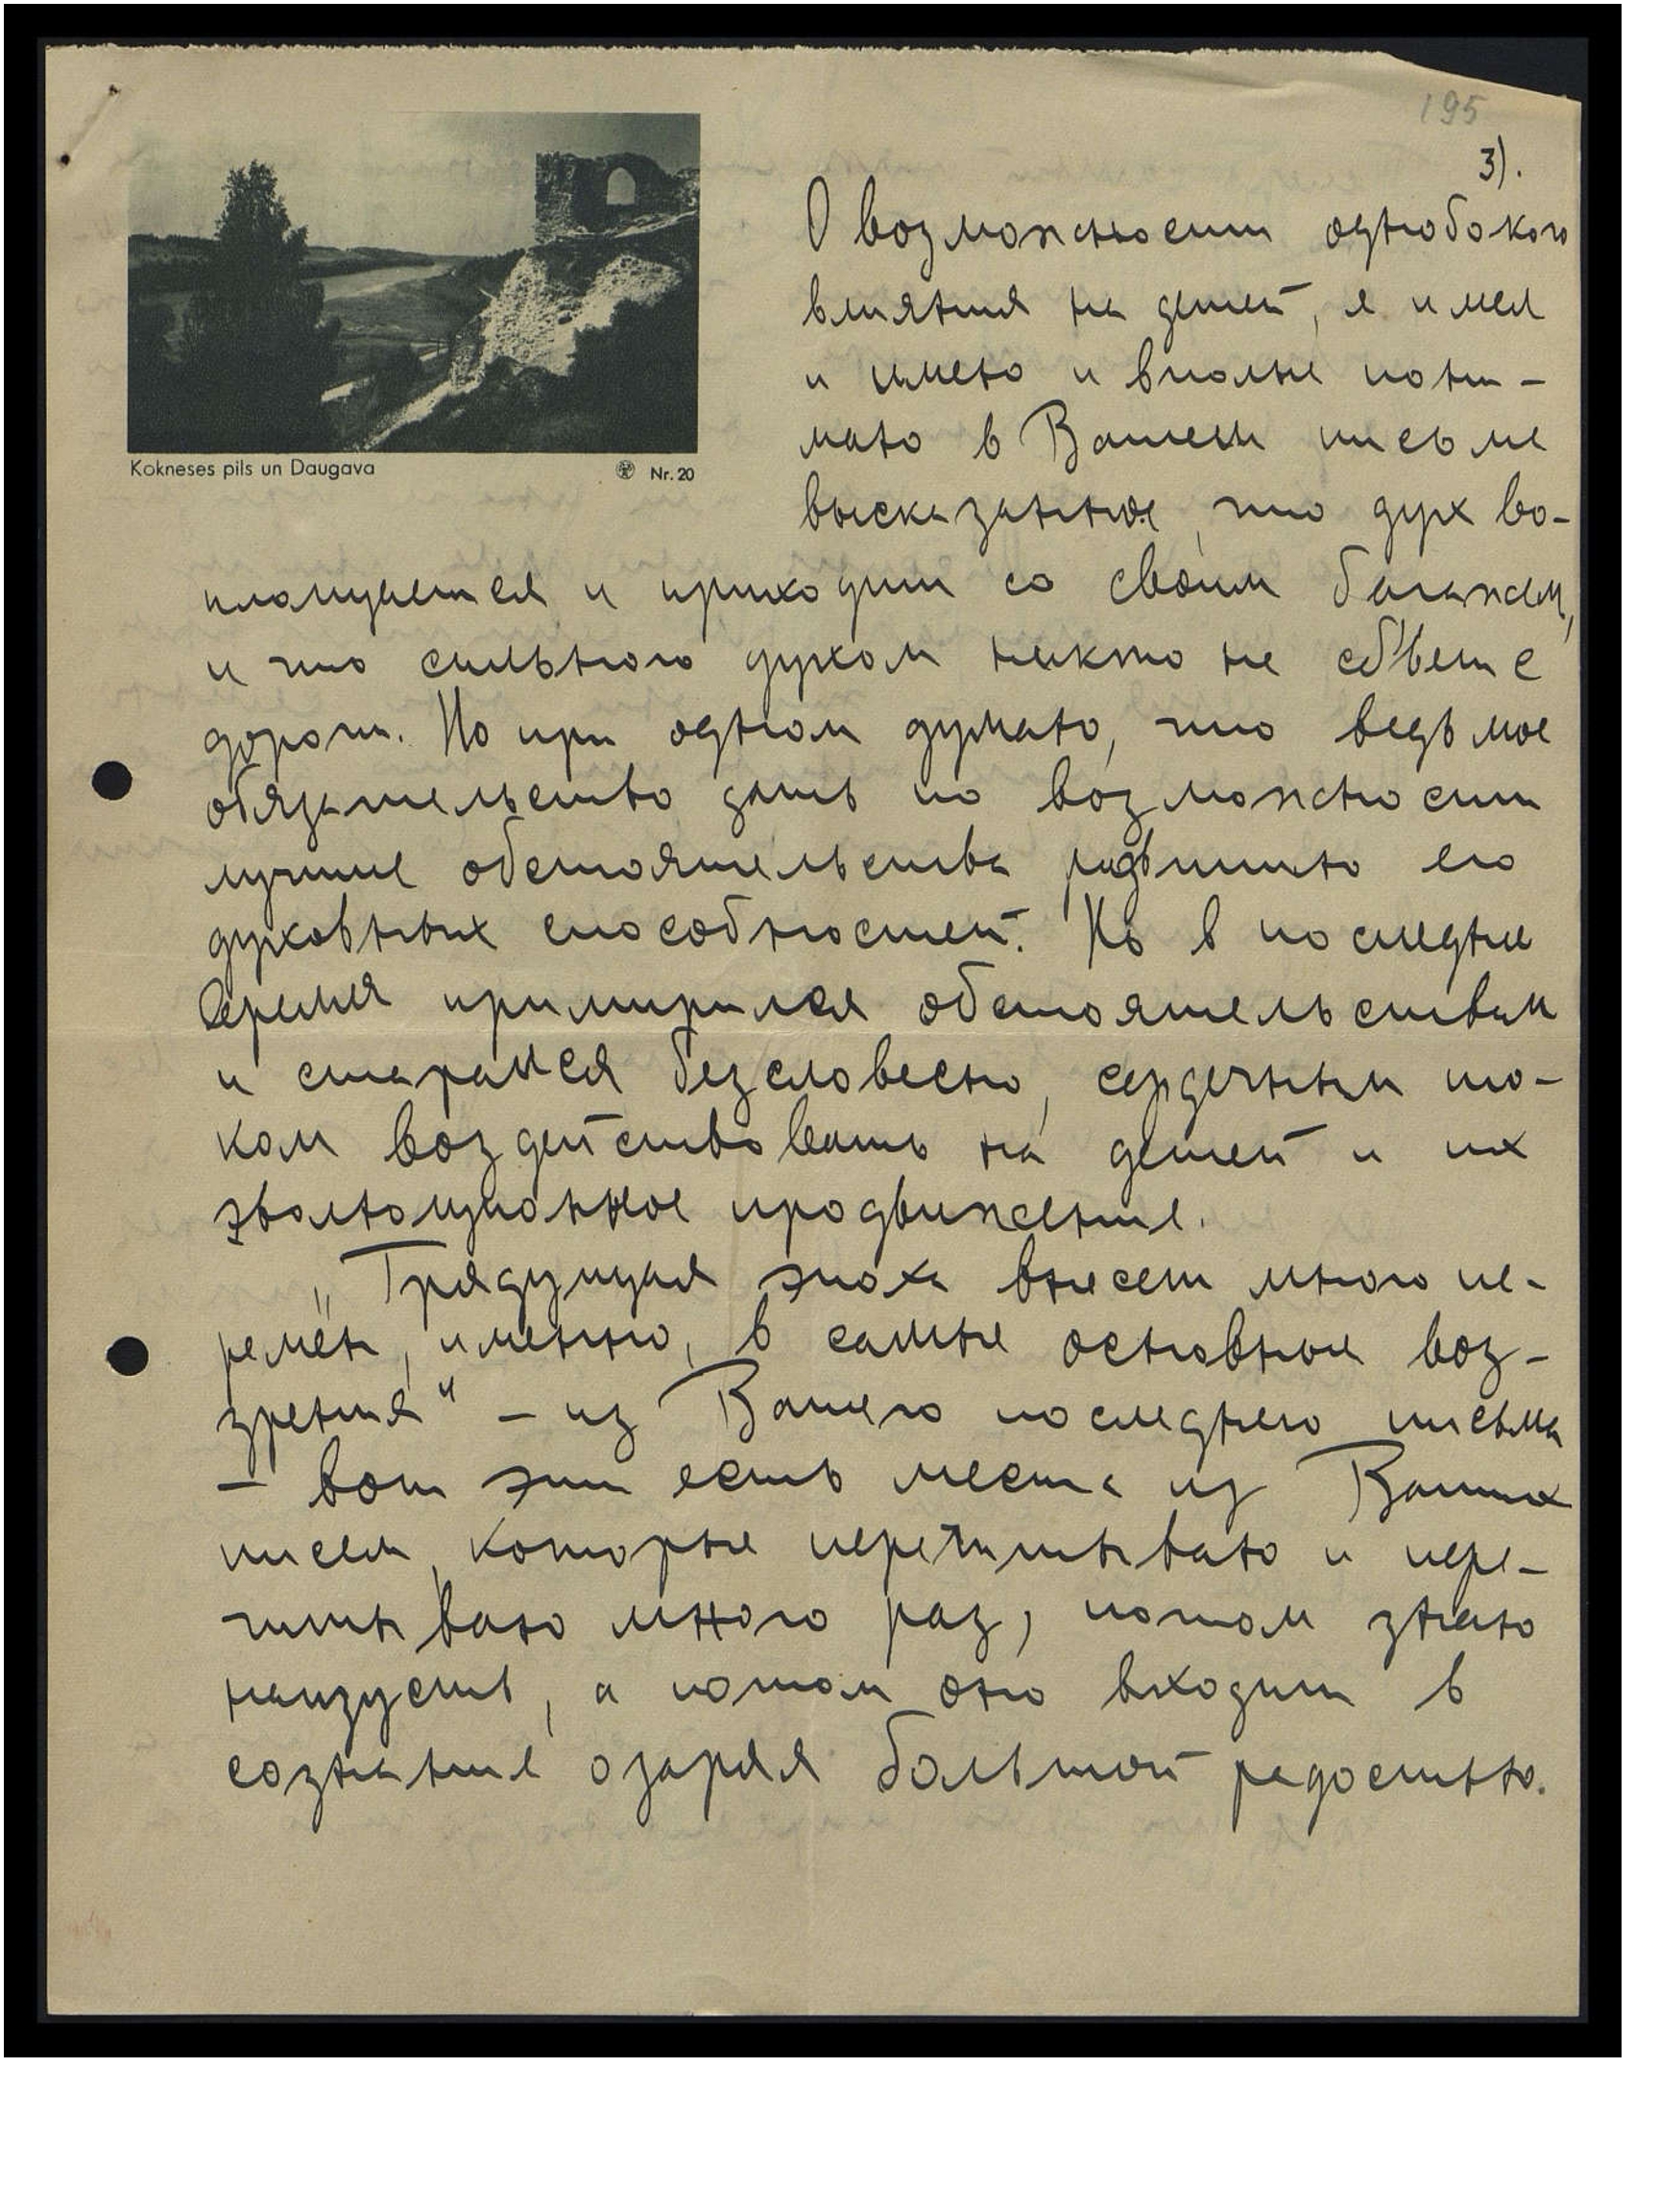 195
3).
О возможности однобокого
влияния на детей, я имел
и имею и вполне пони-
маю в Вашем письме
высказанное, что дух во-
площается и приходит со своим багажем,
и что сильного духом никто не собьет с
дороги. Но при одном думаю, что ведь мое
обязательство дать по возможности
лучшие обстоятельства развитию его
духовных способностей. Но в последнее
время примирился обстоятельствам
и старался безсловесно, сердечным то-
ком воздействовать на детей и их
эволюционное продвижение.
„Грядущая эпоха внесет много пе-
ремён, именно, в самые основные воз-
зрения" – из Вашего последнего письма
– вот эти есть места из Ваших
писем, которые перечитываю и пере-
читываю много раз, потом знаю
наизусть, а потом оно входит в
сознание озаряя большой радостью.
Kokneses pils un Daugava
Nr. 20